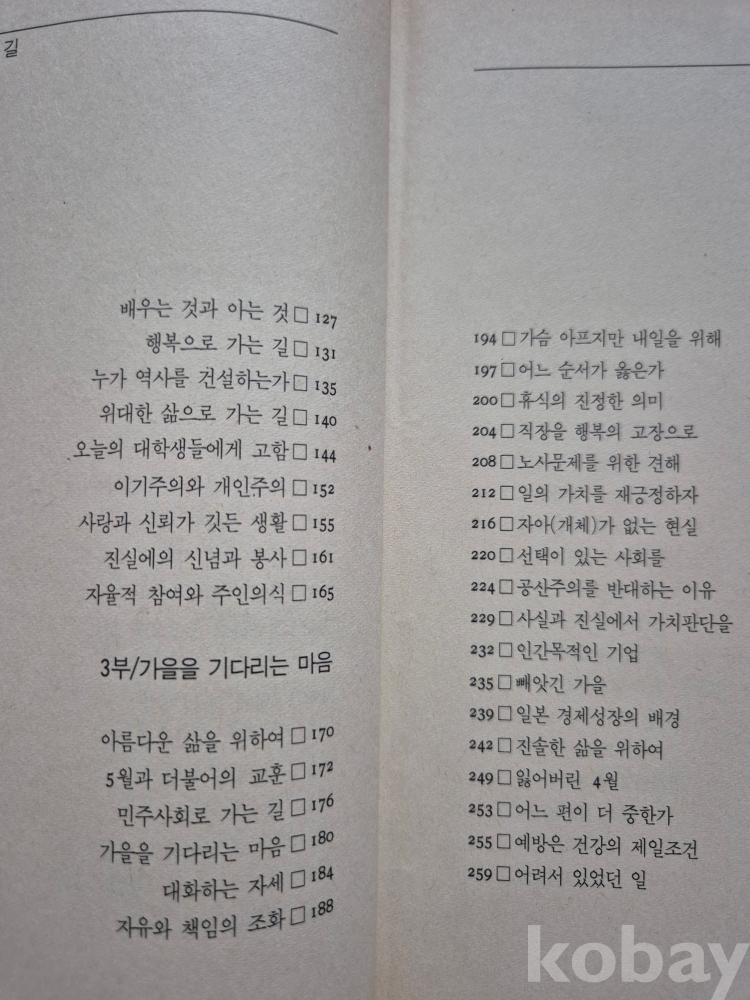 길
배우는 것과 아는 것 □ 127
행복으로 가는 길 □ 131
누가 역사를 건설하는가 □ 135
위대한 삶으로 가는 길 □ 140
오늘의 대학생들에게 고함 □ 144
이기주의와 개인주의 □ 152
사랑과 신뢰가 깃든 생활 □ 155
진실에의 신념과 봉사 □ 161
자율적 참여와 주인의식 □ 165
3부/가을을 기다리는 마음
아름다운 삶을 위하여 □ 170
5월과 더불어의 교훈 □ 172
민주사회로 가는 길 □ 176
가을을 기다리는 마음 □ 180
대화하는 자세 □ 184
자유와 책임의 조화 □ 188
194 □ 가슴 아프지만 내일을 위해
197 □ 어느 순서가 옳은가
200 □ 휴식의 진정한 의미
204 □ 직장을 행복의 고장으로
208 □ 노사문제를 위한 견해
212 □ 일의 가치를 재긍정하자
216 □ 자아(개체)가 없는 현실
220 □ 선택이 있는 사회를
224 □ 공산주의를 반대하는 이유
229 □ 사실과 진실에서 가치판단을
232 □ 인간목적인 기업
235 □ 빼앗긴 가을
239 □ 일본 경제성장의 배경
242 □ 진솔한 삶을 위하여
249 □ 잃어버린 4월
253 □ 어느 편이 더 중한가
255 □ 예방은 건강의 제일조건
259 □ 어려서 있었던 일
kobay